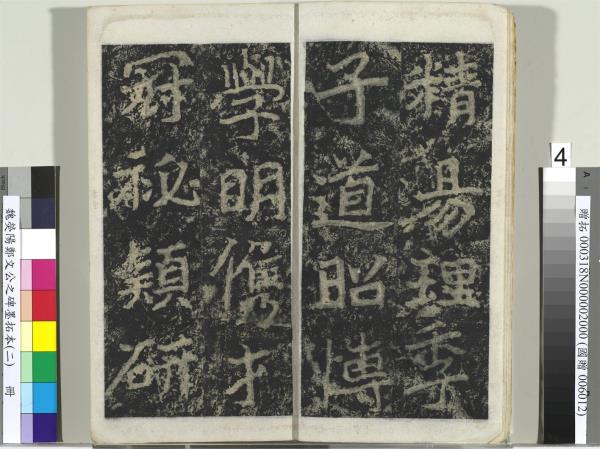 精易理季
子道昭愽
學明儁才
冠秘穎研
4
A
贈拓 000318N000002000 (國贈 006012)
魏滎陽鄭文公之碑墨拓本(二) 冊